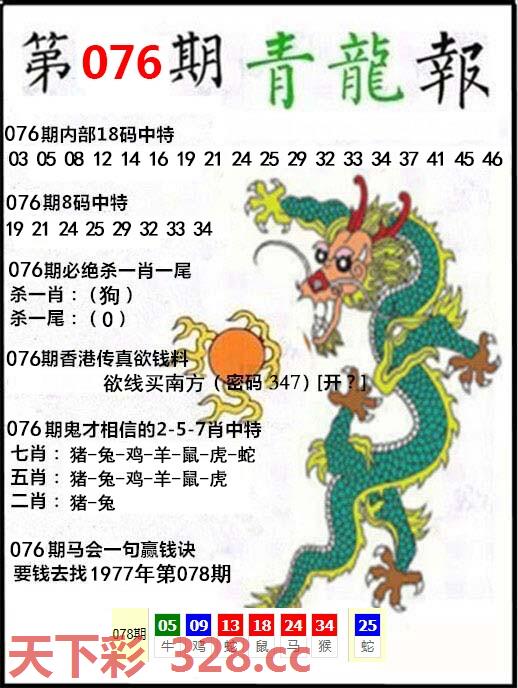 第076期青龍報
076期内部18码中特
03 05 08 12 14 16 19 21 24 25 29 32 33 34 37 41 45 46
076期8码中特
19 21 24 25 29 32 33 34
076期必绝杀一肖一尾
杀一肖：（狗）
杀一尾：（0）
076期香港传真欲钱料
欲线买南方（密码 347) [开？]
076期鬼才相信的2-5-7肖中特
七肖：猪-兔-鸡-羊-鼠-虎-蛇
五肖：猪-兔-鸡-羊-鼠-虎
二肖：猪-兔
076期马会一句赢钱诀
要钱去找1977年第078期
078期 05 09 13 18 24 34 25
牛 鸡 蛇 鼠 马 猴 蛇
天下彩 328.cc